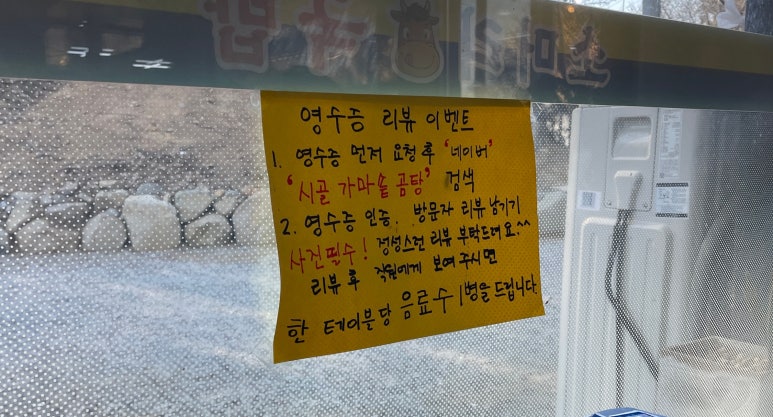 영수증 리뷰 이벤트
1. 영수증 먼저 요청 후 '네이버'
'시골 가마솥 곰탕' 검색
2. 영수증 인증. 방문자 리뷰 남기기
사진필수! 정성스런 리뷰 부탁드려요^^
리뷰 후 직원에게 보여 주시면
한 테이블당 음료수 1병을 드립니다.